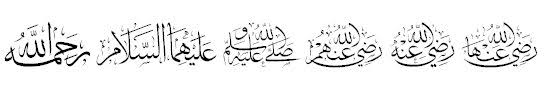 رضي الله عنها رضي الله عنه رضي الله عنهم صلى الله عليه وسلم عليهما السلام رحمه الله